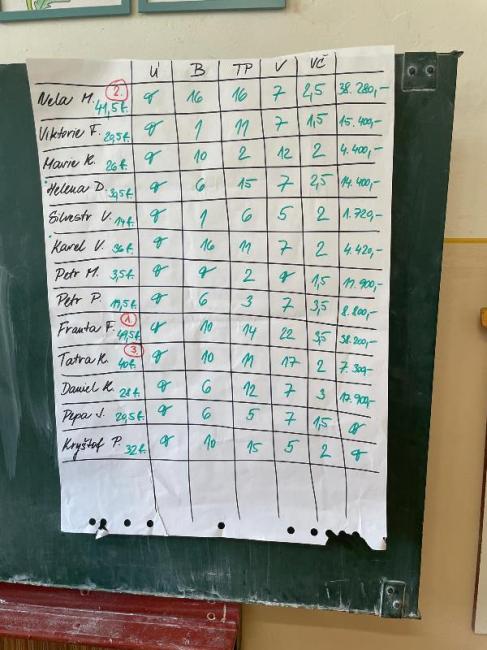 Ú B TP V VČ
Nela M. 2. 41,5 b. ø 16 16 7 2,5 38.280,-
Viktorie F. 20,5 b. ø 1 11 7 1,5 15.400,-
Marie K. 26 b. ø 10 2 12 2 4.400,-
Helena D. 30,5 b. ø 6 15 7 2,5 14.400,-
Silvestr V. 14 b. ø 1 6 5 2 1.720,-
Karel V. 36 b. ø 16 11 7 2 4.420,-
Petr M. 3,5 b. ø ø 2 ø 1,5 11.900,-
Petr P. 19,5 b. ø 6 3 7 3,5 8.800,-
Franta F. 1. 49,5 b. ø 10 14 22 3,5 38.200,-
Tatra K. 3. 40 b. ø 10 11 17 2 7.300,-
Daniel K. 28 b. ø 6 12 7 3 17.900,-
Pepa J. 20,5 b. ø 6 5 7 1,5 ø
Kryštof P. 32 b. ø 10 15 5 2 ø